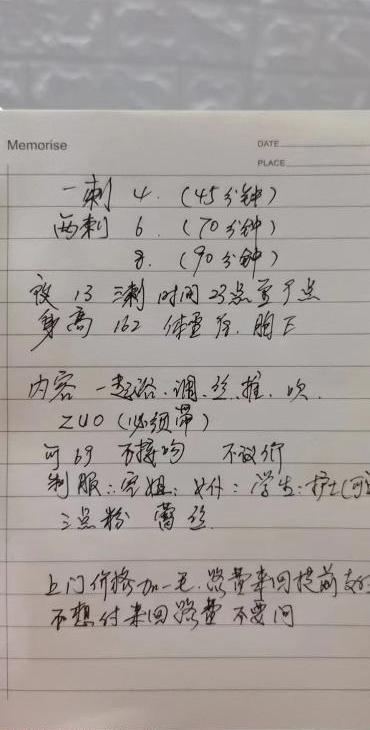 Memorise
DATE
PLACE
一刺 4. (45分钟)
两刺 6. (70分钟)
8. (90分钟)
夜 13 三刺 时间23点至7点
身高 162 体重 胸 E
内容 一起浴.调.丝.推.吹.
ZUO (必须带)
可69 不接吻 不议价
制服:空姐:女仆:学生:护士(可
三点粉 蕾丝
上门价格加一毛.路费来回提前支付
不想付来回路费 不要问